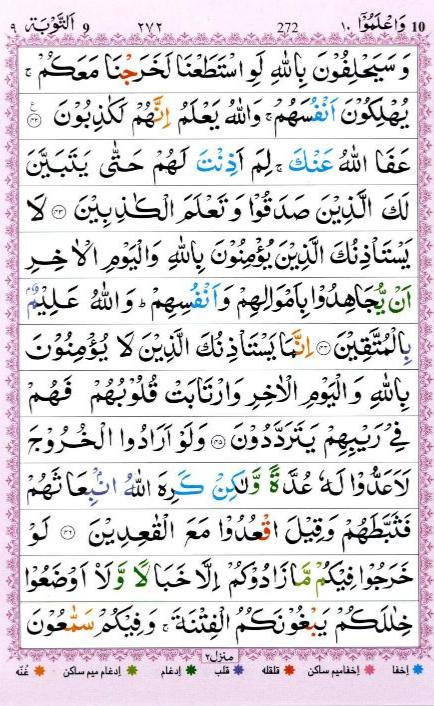 وَاعْلَمُوْٓا ۱۰ 10 272 ۲۷۲ اَلتَّوْبَة ۹ 9
وَ سَيَحْلِفُوْنَ بِاللّٰهِ لَوِ اسْتَطَعْنَا لَخَرَجْنَا مَعَكُمْ ۚ
يُهْلِكُوْنَ اَنْفُسَهُمْ ۚ وَاللّٰهُ يَعْلَمُ اِنَّهُمْ لَكٰذِبُوْنَ ﴿۴۲﴾ ع
عَفَا اللّٰهُ عَنْكَ ۚ لِمَ اَذِنْتَ لَهُمْ حَتّٰى يَتَبَيَّنَ
لَكَ الَّذِيْنَ صَدَقُوْا وَ تَعْلَمَ الْكٰذِبِيْنَ ﴿۴۳﴾ لَا
يَسْتَاْذِنُكَ الَّذِيْنَ يُؤْمِنُوْنَ بِاللّٰهِ وَالْيَوْمِ الْاٰخِرِ
اَنْ يُّجَاهِدُوْا بِاَمْوَالِهِمْ وَاَنْفُسِهِمْ ؕ وَاللّٰهُ عَلِيْمٌۢ
بِالْمُتَّقِيْنَ ﴿۴۴﴾ اِنَّمَا يَسْتَاْذِنُكَ الَّذِيْنَ لَا يُؤْمِنُوْنَ
بِاللّٰهِ وَ الْيَوْمِ الْاٰخِرِ وَارْتَابَتْ قُلُوْبُهُمْ فَهُمْ
فِىْ رَيْبِهِمْ يَتَرَدَّدُوْنَ ﴿۴۵﴾ وَلَوْ اَرَادُوا الْخُرُوْجَ
لَاَعَدُّوْا لَهٗ عُدَّةً وَّلٰكِنْ كَرِهَ اللّٰهُ انْۢبِعَاثَهُمْ
فَثَبَّطَهُمْ وَقِيْلَ اقْعُدُوْا مَعَ الْقٰعِدِيْنَ ﴿۴۶﴾ لَوْ
خَرَجُوْا فِيْكُمْ مَّا زَادُوْكُمْ اِلَّا خَبَالًا وَّلَا۟اَوْضَعُوْا
خِلٰلَكُمْ يَبْغُوْنَكُمُ الْفِتْنَةَ ۚ وَفِيْكُمْ سَمّٰعُوْنَ
منزل ۲
اخفا اخفامیم ساکن قلقله قلب ادغام ادغام میم ساکن غُنّه